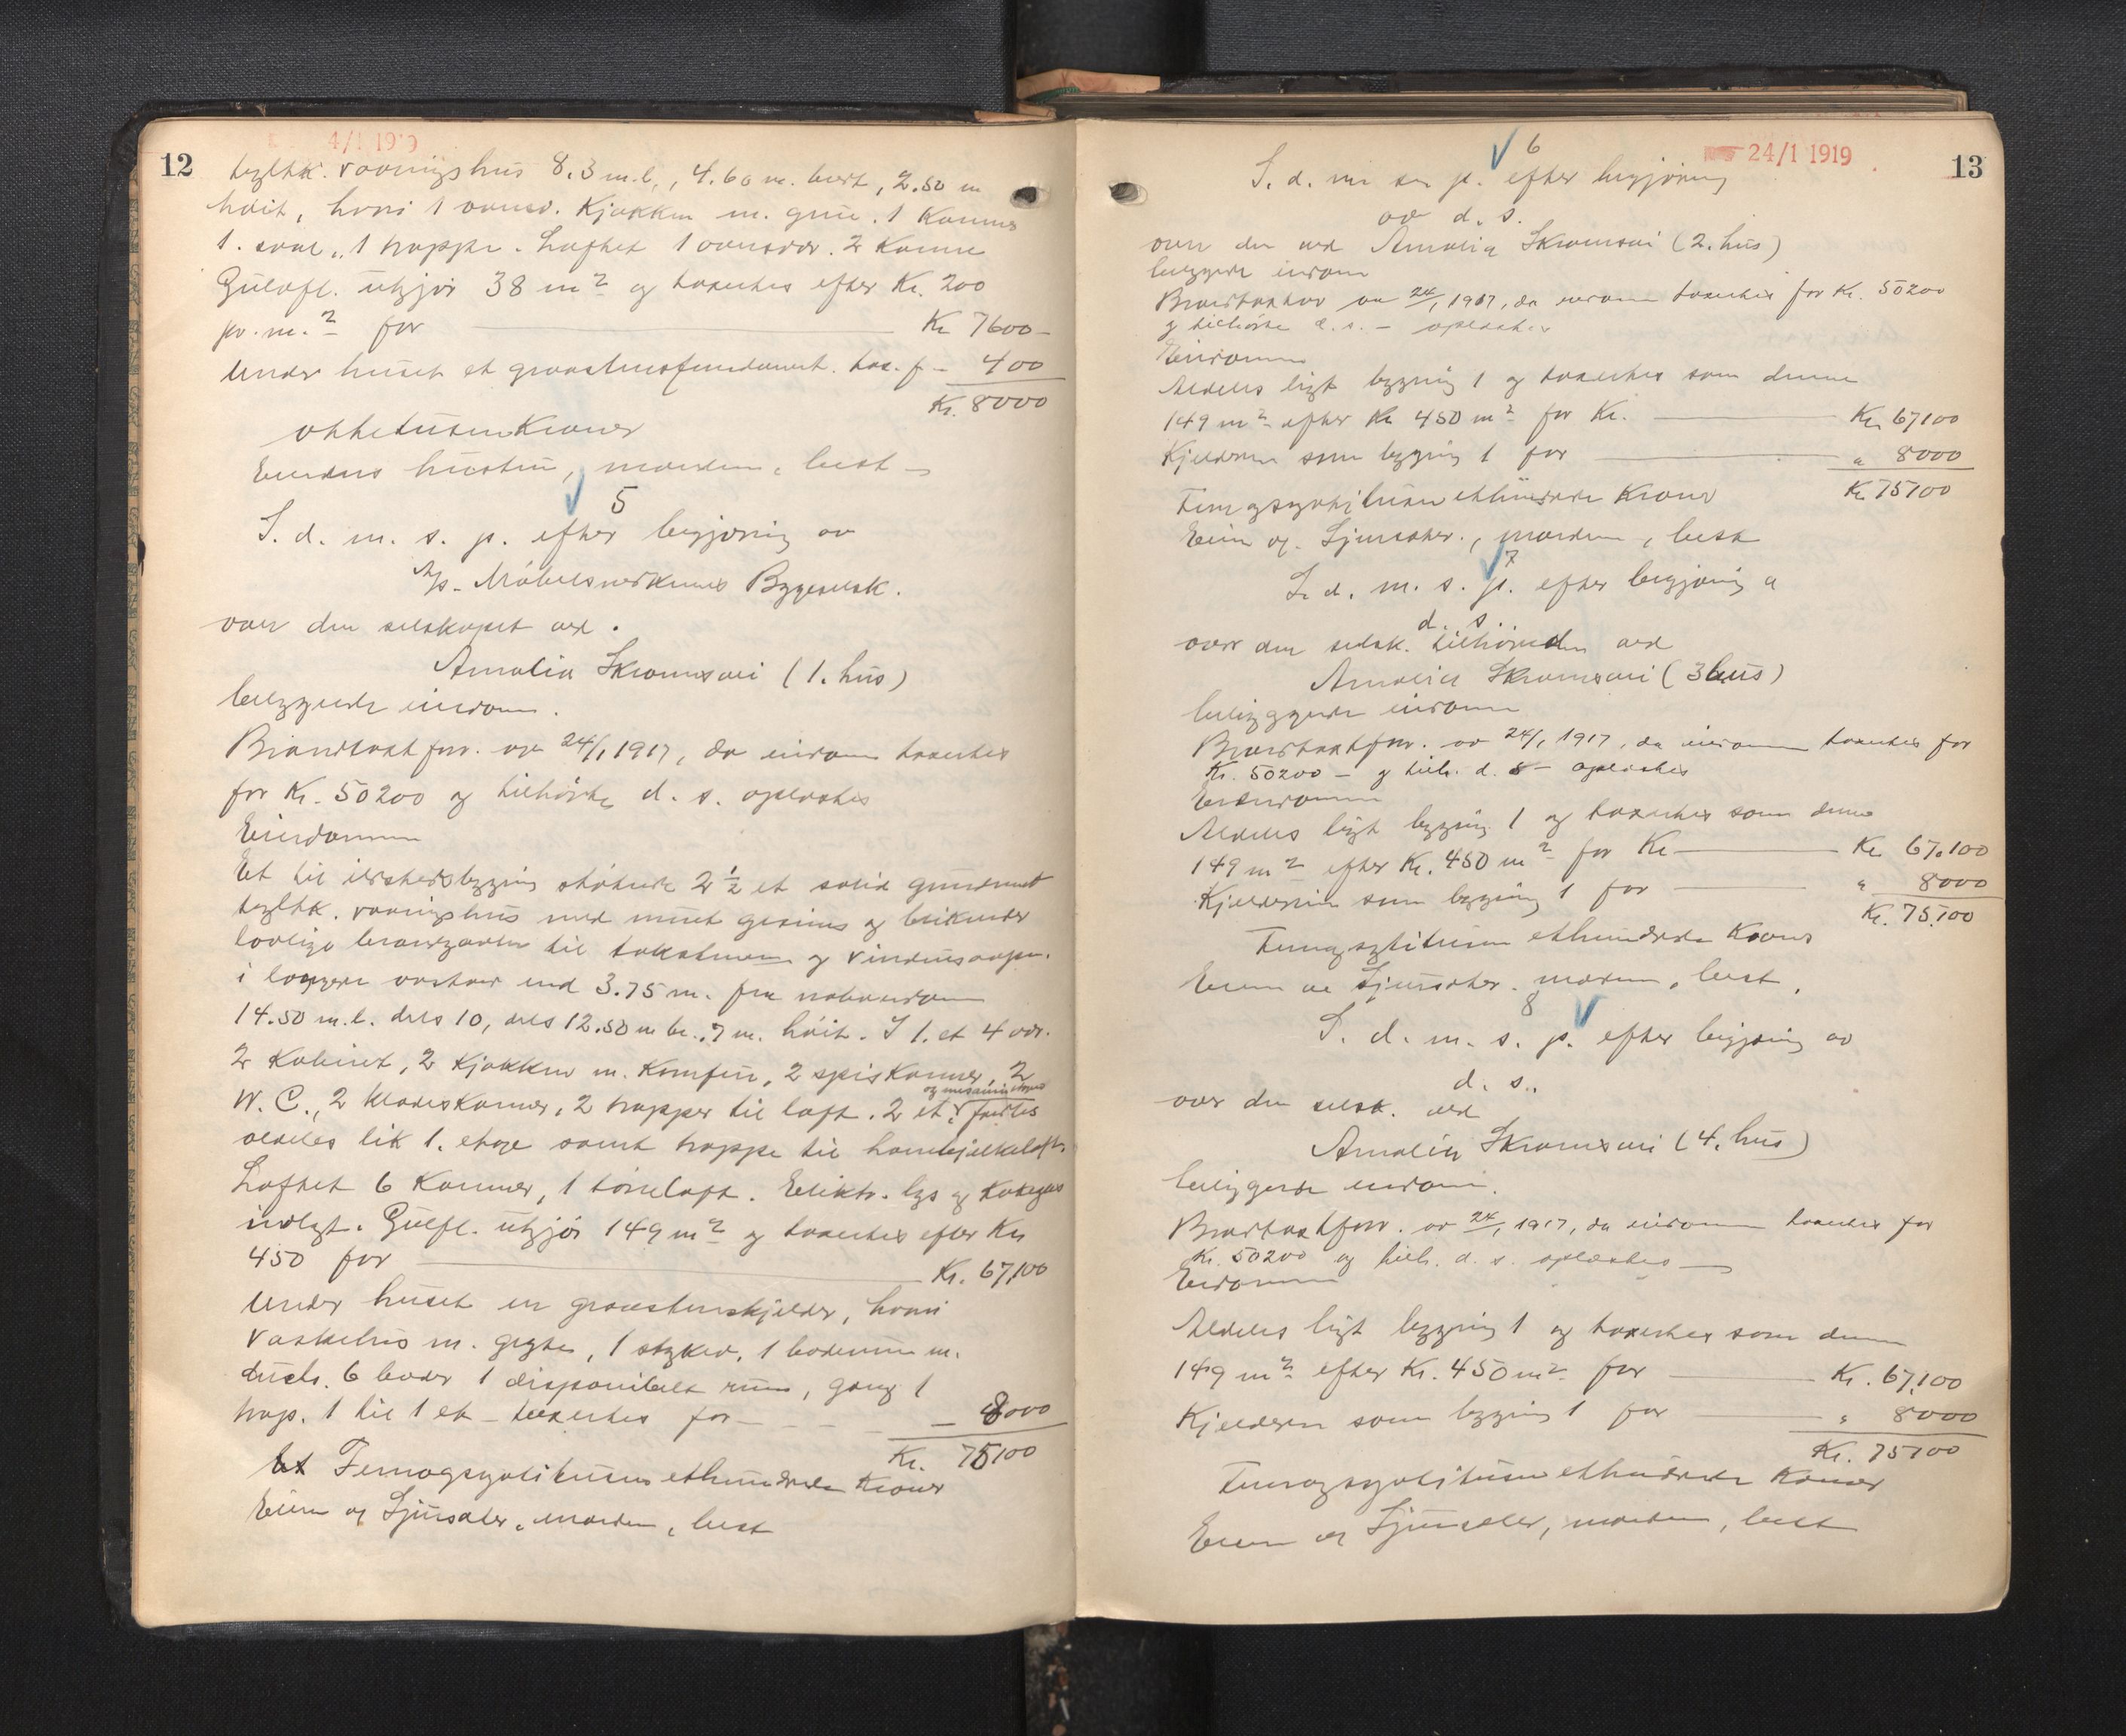 12
4/1 19
teglhk. vaaningshus 8.3 m.l., 4.60 m. bredt, 2.50 m
høit, hvori 1 værelse. Kjøkken m. grue. 1 Kammer
1. sval, 1 trappe. Loftet 1 værelse. 2 Kamre
Gulvfl. utgjør 38 m² og taxertes efter Kr. 200
pr. m.² for Kr 7600-
Under huset et graastensfundament. tax. f - 400
Kr. 8000
ottetusen Kroner
Eierens hustru, marken, best
5
S. d. m. s. p. efter begjæring av
A/s. Møbelsnerkernes Byggeselsk.
over den selskapet ved.
Amalia Skramsvei (1. hus)
beliggende eiendom.
Brandtaxtforr. av 24/1 1917, da eiendom taxertes
for Kr. 50200 og tilhørte d. s. oplæstes
Eiendommen
Et til ildstedsbygning støtende 2½ et solid grundmuret
teglhk. vaaningshus med muret gesims og
lovlige brandgavler til takstenene og vindusaapn.
i væggene ved 3.75 m. fra naboeiendom
14.50 m.l. dels 10, dels 12.50 m br., 7 m. høit. I 1. et 4 vær.
2 Kabinet, 2 Kjøkken m. Komfur, 2 spiskamre, 2
W. C., 2 klædeskamre, 2 trapper til loft. 2 et.
aldeles lik 1. etage samt trappe til hanebjelkeloft
Loftet 6 Kammer, 1 tørreloft. Elektr. lys og kokegas
indlagt. Gulvfl. utgjør 149 m² og taxertes efter Kr
450 for Kr. 67,100
Under huset en graastenskjelder, hvori
vaskehus m. gryte, 1 1 baderum m.
dusch. 6 boder 1 disponibelt rum, gang 1
trap. 1 til 1 et - taxertes for - 8000
Kr. 75100
Femogsyttitusen ethundrede Kroner
Eieren og Ljunsater, marken, best
24/1 1919
13
6
S. d. m. s. p. efter begjæring
av d. s.
over den ved Amalia Skramsvei (2. hus)
beliggende eiendom
Brandtaxtforr av 24/1 1917, da eiendom taxertes for Kr. 50200
og tilhørte d. s. - oplæstes
Eiendommen
Aldeles ligt bygning 1 og taxertes som denne
149 m² efter Kr 450 m² for Kr. Kr. 67100
Kjelderen som bygning 1 for " 8000
Kr 75100
Femogsyttitusen ethundrede Kroner
Eieren og Ljunsater., marken, best
7
S. d. m. s. p. efter begjæring a
d. s.
over den selsk. tilhørende ved
Amalia Skramsvei (3 hus)
beliggende eiendom
Brandtaxtforr. av 24/1 1917, da eiendommen taxertes for
Kr. 50200 - og tilh. d. s - oplæstes
Eiendommen
Aldeles ligt bygning 1 og taxertes som denne
149 m² efter Kr. 450 m² for Kr Kr 67.100
Kjelderen som bygning 1 for " 8000
Kr. 75.100
Femogsyttitusen ethundrede Kroner
Eieren og Ljunsater. marken, best.
8
S. d. m. s. p. efter begjæring av
d. s.
over den selsk. ved
Amalia Skramsvei (4. hus)
beliggende eiendom.
Brandtaxtforr. av 24/1 1917, da eiendommen taxertes for
Kr. 50200 og tilh. d. s. oplæstes
Eiendommen
Aldeles ligt bygning 1 og taxertes som denne
149 m² efter Kr. 450 m² for Kr. 67,100
Kjelderen som bygning 1 for " 8000
Kr. 75100
Femogsyttitusen ethundrede Kroner
Eieren og Ljunsater, marken, best